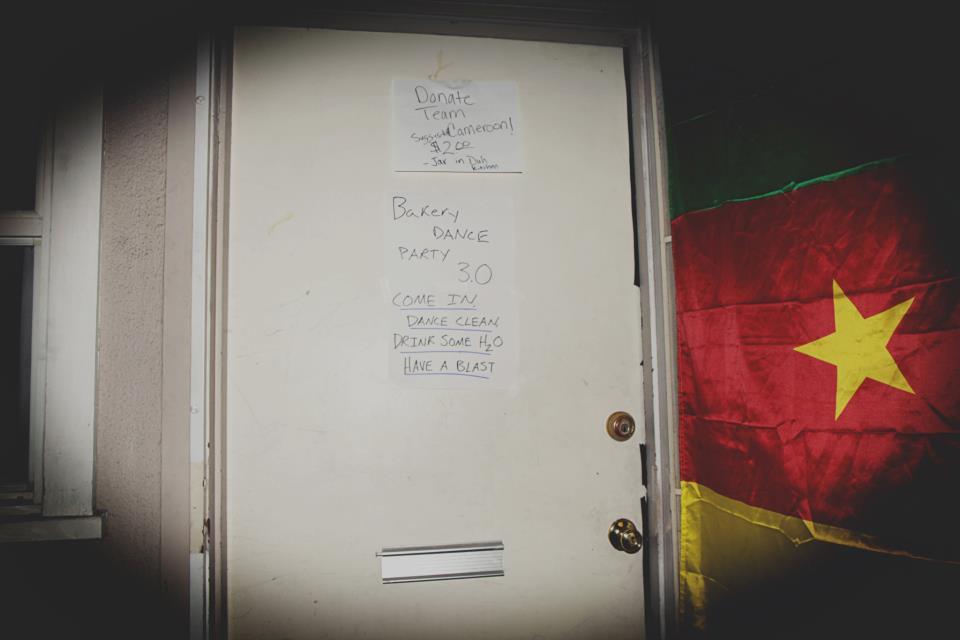 Donate
Team
Cameroon!
$2.00
- Jar in Duh
Kitchen
Bakery
DANCE
PARTY
3.0
COME IN.
DANCE CLEAN.
DRINK SOME H2O
HAVE A BLAST